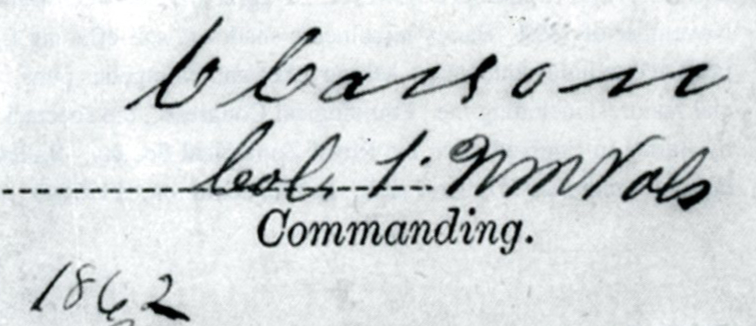 C Carson
Col. 1. N M Vols
Commanding.
1862